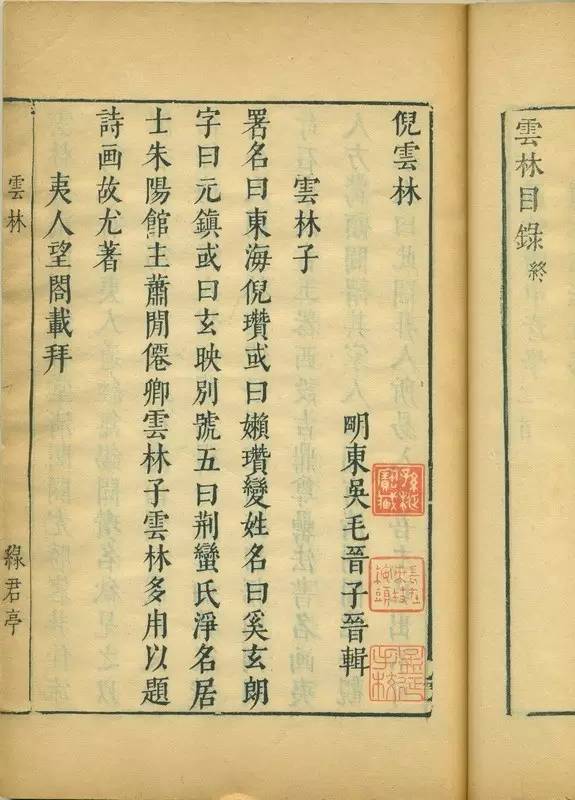 雲林目錄終
倪雲林
明東吳毛晉子晉輯
雲林子
署名曰東海倪瓚或曰嬾瓚變姓名曰奚玄朗
字曰元鎮或曰玄映別號五曰荆蠻氏淨名居
士朱陽館主蕭閒僊卿雲林子雲林多用以題
詩画故尤著
夷人望閣載拜
雲林
綠君亭